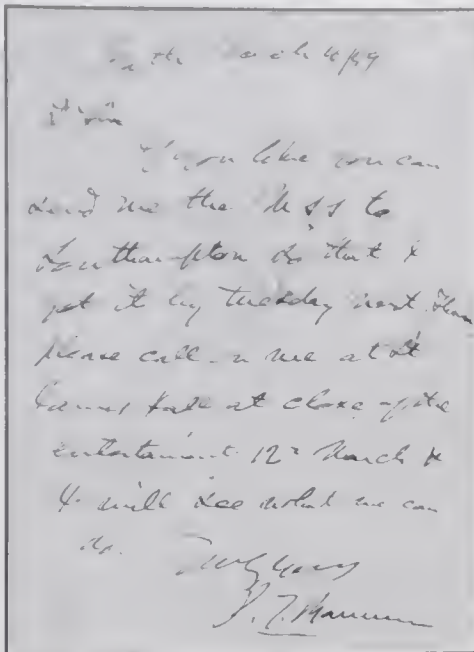 you like you can
send me the MSS to
Southampton so that I
get it by Tuesday next. Then
please call on me at St
James Hall at close of the
entertainment 12th March &
I will see what we can
do.
Yours